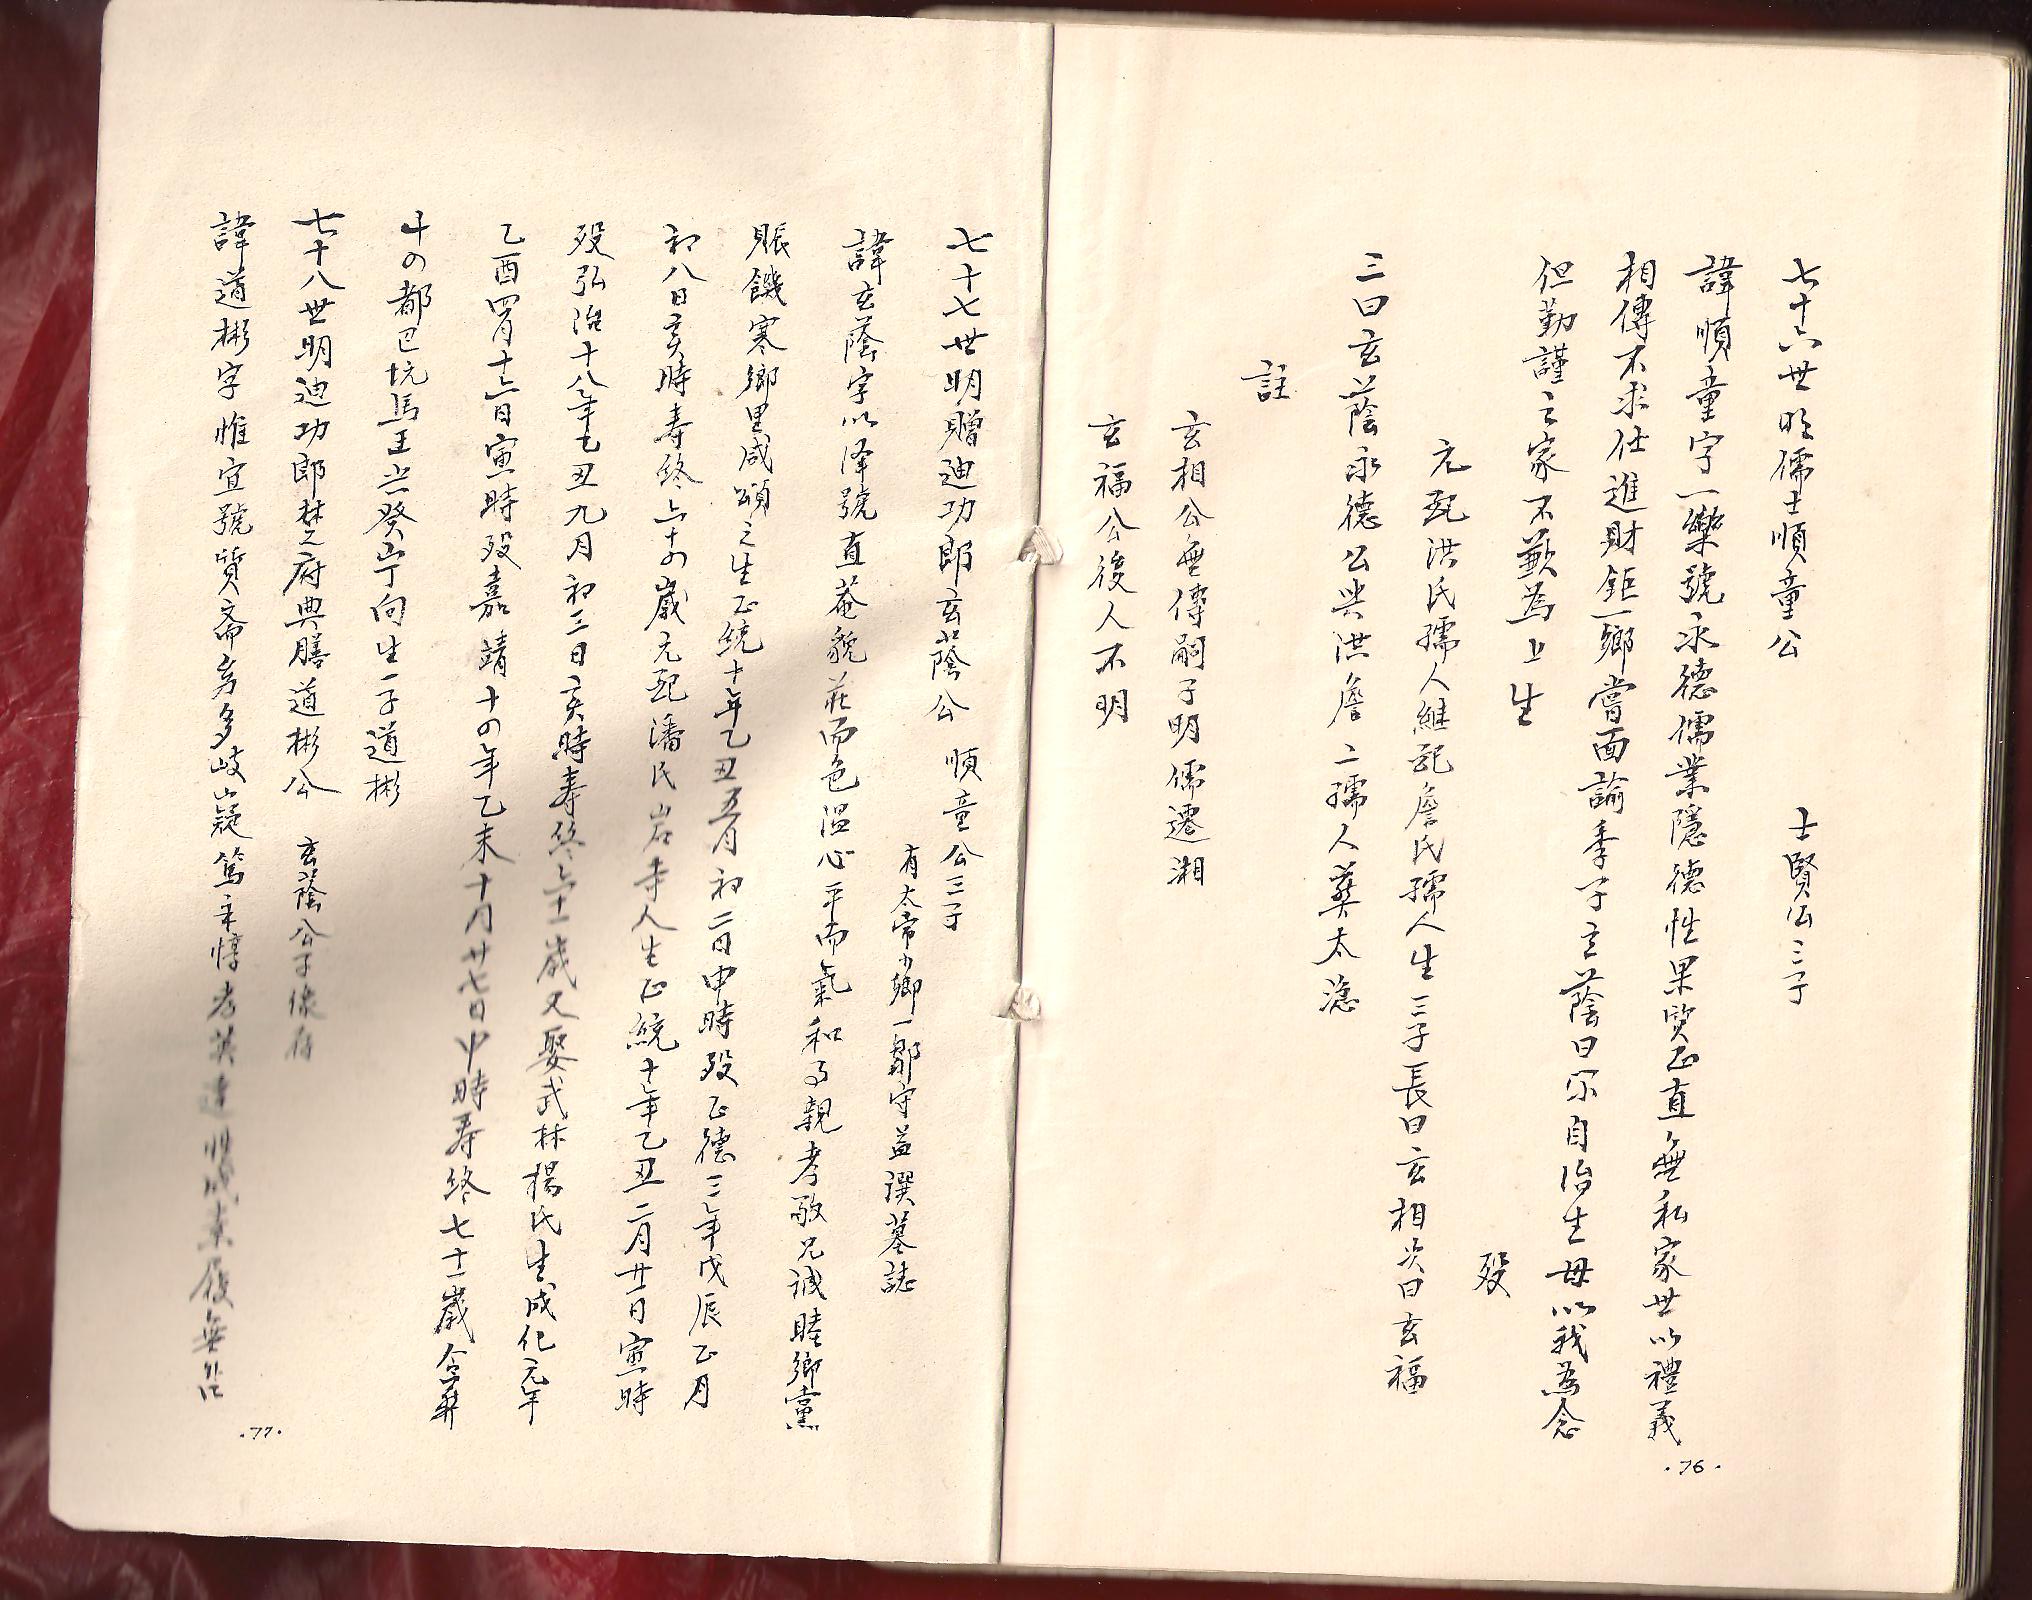 七十六世明儒士順童公 士賢公三子
諱順童字一樂號永德儒業隱德性果質正直無私家世以禮義
相傳不求仕進財鉅一鄉嘗面諭季子玄蔭曰尔自治生毋以我為念
但勤謹立家不歉為上生 歿
元配洪氏孺人継配詹氏孺人生三子長曰玄相次曰玄福
三曰玄蔭永德公與洪詹二孺人葬太
註
玄相公無傳嗣子明儒遷湘
玄福公後人不明
·76·
七十七世明贈迪功郎玄蔭公 順童公三子
有太常少卿一鄒守益譔墓誌
諱玄蔭字以泽號直菴貌莊而色溫心平而氣和事親孝敬兄诚睦鄉黨
賑饑寒鄉里咸頌之生正統十年乙丑五月初二日申時歿正德三年戊辰正月
初八日亥時寿終六十四歲元配潘氏岩寺人生正統十年乙丑二月廿一日寅時
歿弘治十八年乙丑九月初三日亥時寿終六十一歲又娶武林楊氏生成化元年
乙酉四月十六日寅時歿嘉靖十四年乙未十月廿七日申時寿終七十一歲合葬
十四都巳坑馬王山癸山丁向生一子道彬
七十八世明迪功郎楚府典膳道彬公 玄蔭公子像存
諱道彬字惟宜號質斋多岐嶷篤惇孝履無
·77·